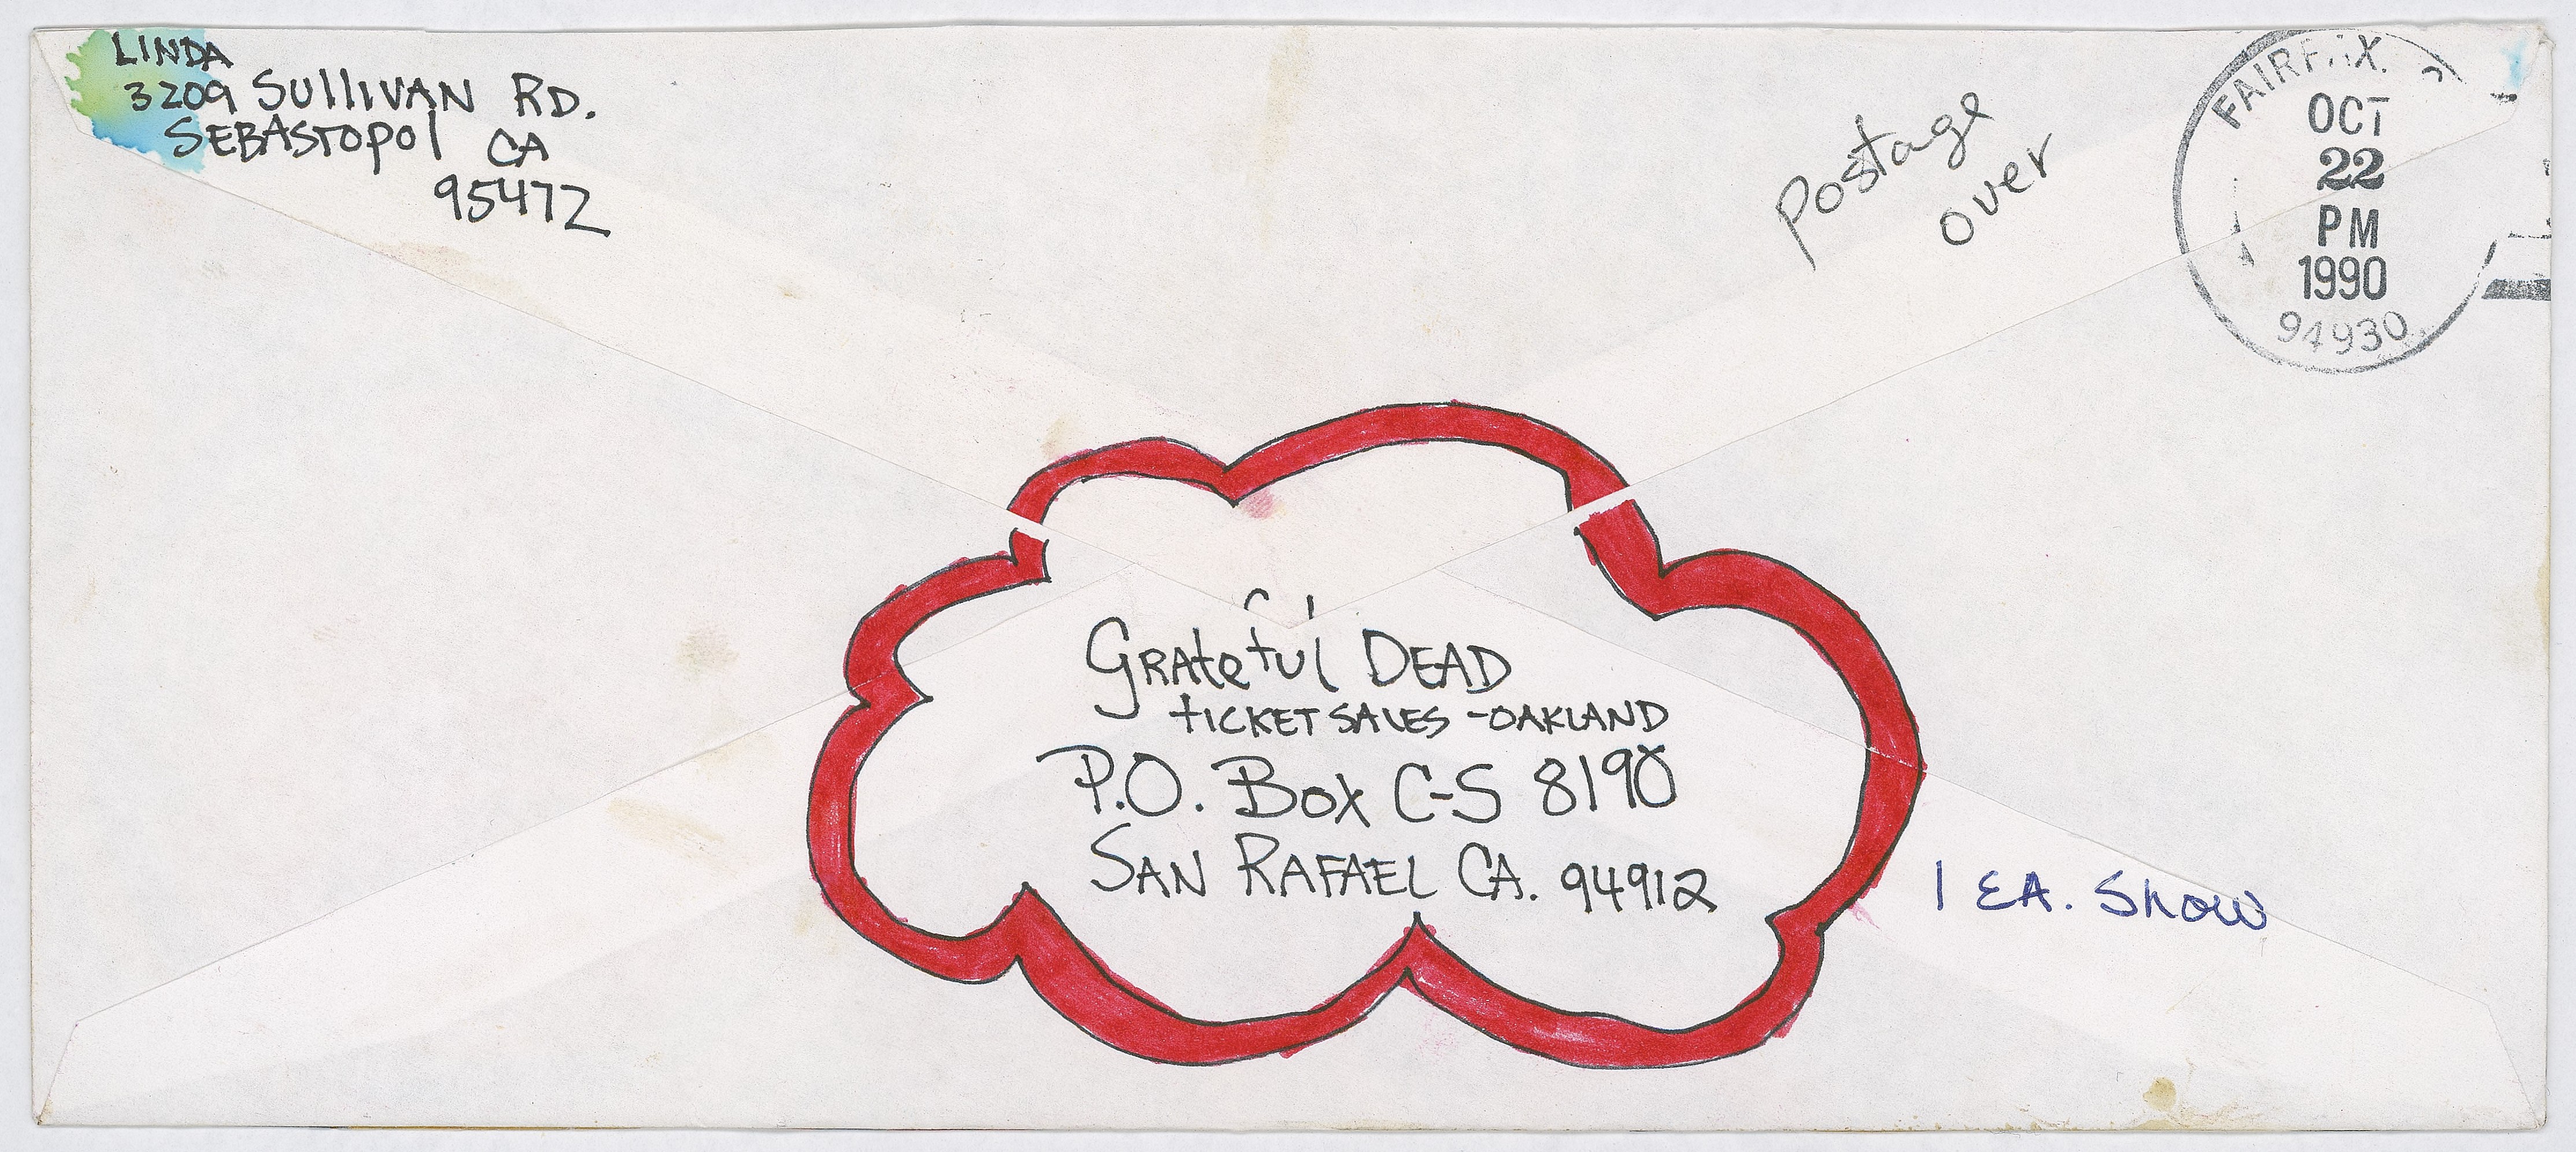 LINDA
3209 SullIVAN RD.
SEBAStopol CA
95472
Postage
over
OCT
22
PM
1990
94930
GRAteful DEAD
tICKET SALES - OAKLAND
P.O. Box C-S 8190
SAN RAFAEL CA. 94912
1 EA. Show